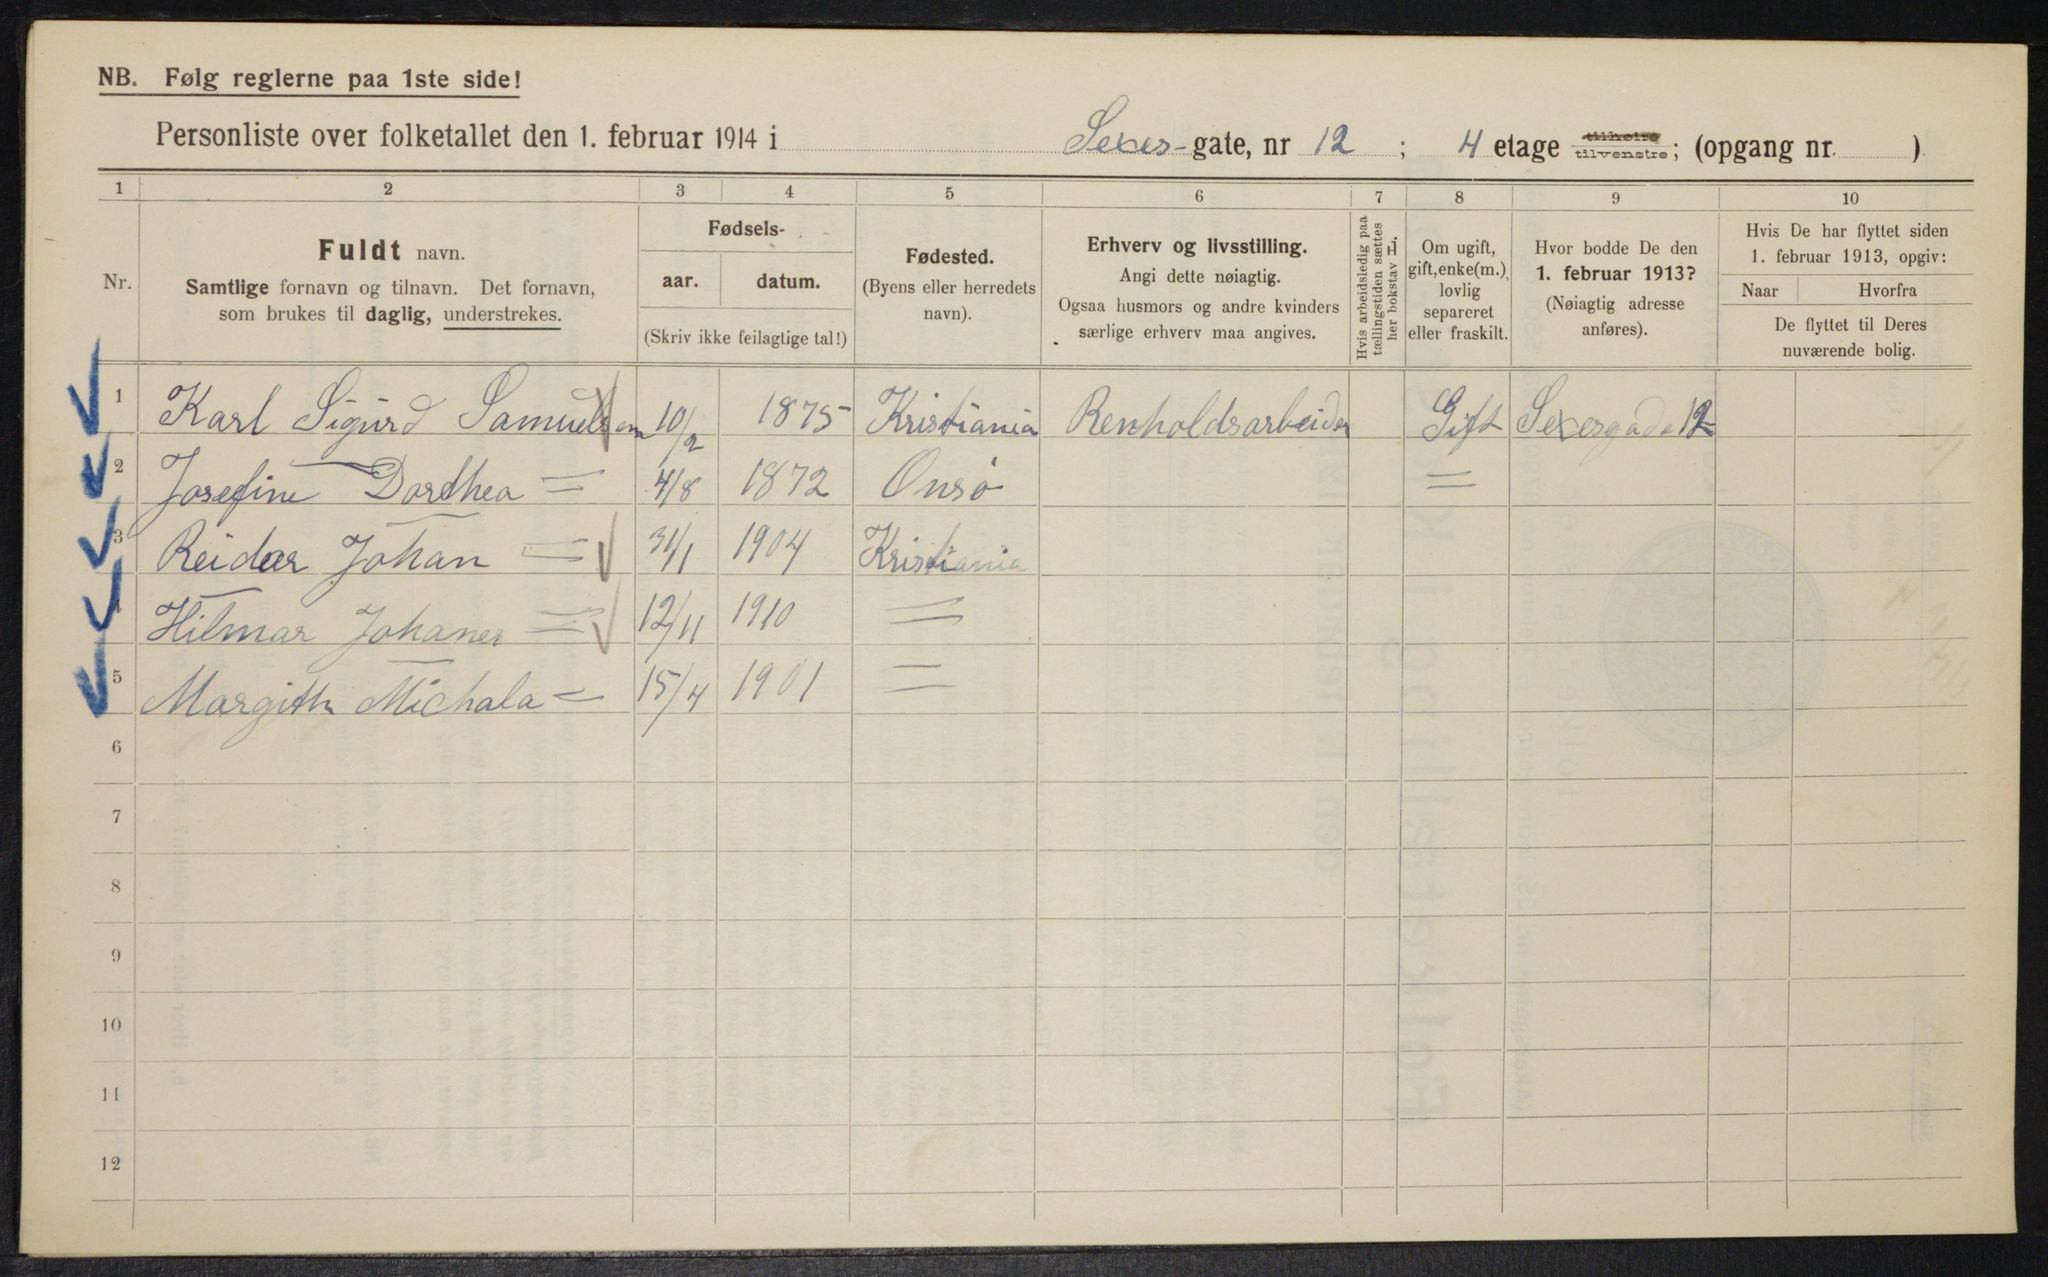 NB. Følg reglerne paa 1ste side!
Personliste over folketallet den 1. februar 1914 i Sexes-gate, nr 12 ; 4 etage tilhøire tilvenstre; (opgang nr. )
1 2 3 4 5 6 7 8 9 10
Nr.
Fuldt navn.
Samtlige fornavn og tilnavn. Det fornavn,
som brukes til daglig, understrekes.
Fødsels-
aar. datum.
(Skriv ikke feilagtige tal!)
Fødested.
(Byens eller herredets
navn).
Erhverv og livsstilling.
Angi dette nøiagtig.
Ogsaa husmors og andre kvinders
særlige erhverv maa angives.
Hvis arbeidsledig paa
tællingstiden sættes
her bokstav H.
Om ugift,
gift, enke(m.),
lovlig
separeret
eller fraskilt.
Hvor bodde De den
1. februar 1913?
(Nøiagtig adresse
anføres).
Hvis De har flyttet siden
1. februar 1913, opgiv:
Naar Hvorfra
De flyttet til Deres
nuværende bolig.
1 Karl Sigurd Samuelsen 10/2 1875 Kristiania Renholdsarbeider Gift Sexesgade 12
2 Josefine Dorthea = 4/8 1872 Onsö =
3 Reidar Johan = 31/1 1904 Kristiania
4 Hilmar Johanes = 12/11 1910 =
5 Margith Michala = 15/4 1901 =
6
7
8
9
10
11
12